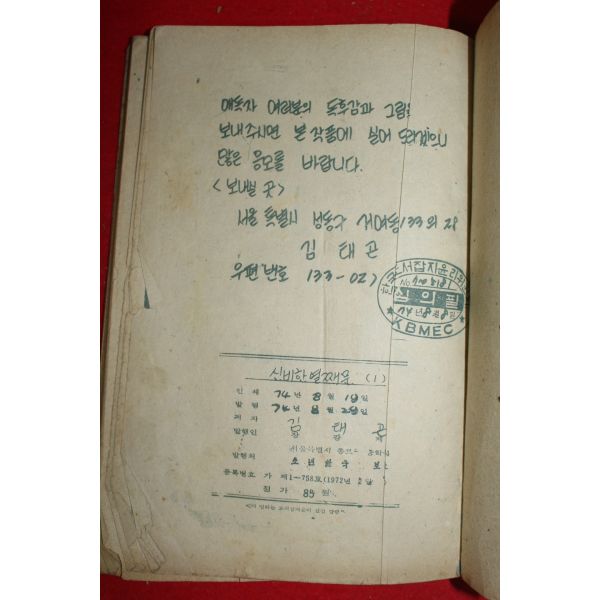 애독자 여러분의 독후감과 그림을
보내주시면 본 작품에 실어 드리겠으니
많은 응모를 바랍니다.
<보내실 곳>
서울 특별시 성동구 133의 28
김 태 곤
우편번호 133-027
심의필
74년 8월 8일
KBMEC
신비한 열째문 (1)
인쇄 74년 8월 19일
발행 74년 8월 25일
저자 김 태 곤
발행인
서울특별시 종로
발행처 소년한국
등록번호 가 제1-758호(1972년
정가 85원